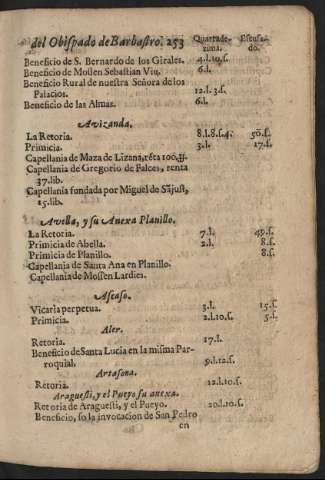 del Obispado de Barbastro. 253 Quartade- Escusa-
zima. do.
Beneficio de S. Bernardo de los Girales. 4.l.10.ſ.
Beneficio de Moſſen Sebaſtian Viu. 6.l.
Beneficio Rural de nueſtra Señora de los
Palacios. 12.l.3.ſ.
Beneficio de las Almas. 6.l.
Avizanda.
La Retoria. 8.l.8.ſ.4. 50.ſ.
Primicia. 3.l. 17.ſ.
Capellania de Maza de Lizana, rẽta 100.
Capellania de Gregorio de Falces, renta
37.lib.
Capellania fundada por Miguel de Sãjuſt,
15.lib.
Avella, y ſu Anexa Planillo.
La Retoria. 7.l. 49.ſ.
Primicia de Abella. 2.l. 8.ſ.
Primicia de Planillo. 8.ſ.
Capellania de Santa Ana en Planillo.
Capellania de Moſſen Lardies.
Aſcaſo.
Vicaria perpetua. 3.l. 15.ſ.
Primicia. 2.l.10.ſ. 5.l.
Aler.
Retoria. 17.l.
Beneficio de Santa Lucia en la miſma Par-
roquial. 9.l.12.ſ.
Artaſona.
Retoria. 12.l.10.ſ.
Aragueſti, y el Pueyo ſu anexa.
Retoria de Araguеſti, y el Pueyo. 20.l.10.ſ.
Beneficio, ſo la invocacion de San Pedro
en